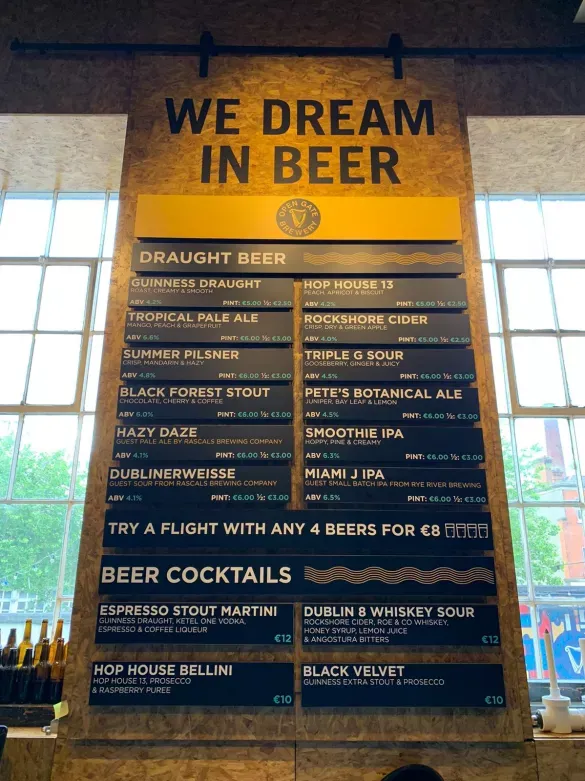 WE DREAM
IN BEER
OPEN GATE
BREWERY
DRAUGHT BEER
GUINNESS DRAUGHT
ROAST, CREAMY & SMOOTH
ABV 4.2% PINT: €5.00 ½: €2.50
HOP HOUSE 13
PEACH, APRICOT & BISCUIT
ABV 4.2% PINT: €5.00 ½: €2.50
TROPICAL PALE ALE
MANGO, PEACH & GRAPEFRUIT
ABV 6.6% PINT: €6.00 ½: €3.00
ROCKSHORE CIDER
CRISP, DRY & GREEN APPLE
ABV 4.0% PINT: €5.00 ½: €2.50
SUMMER PILSNER
CRISP, MANDARIN & HAZY
ABV 4.8% PINT: €6.00 ½: €3.00
TRIPLE G SOUR
GOOSEBERRY, GINGER & JUICY
ABV 4.5% PINT: €6.00 ½: €3.00
BLACK FOREST STOUT
CHOCOLATE, CHERRY & COFFEE
ABV 6.0% PINT: €6.00 ½: €3.00
PETE'S BOTANICAL ALE
JUNIPER, BAY LEAF & LEMON
ABV 4.5% PINT: €6.00 ½: €3.00
HAZY DAZE
GUEST PALE ALE BY RASCALS BREWING COMPANY
ABV 4.1% PINT: €6.00 ½: €3.00
SMOOTHIE IPA
HOPPY, PINE & CREAMY
ABV 6.3% PINT: €6.00 ½: €3.00
DUBLINERWEISSE
GUEST SOUR FROM RASCALS BREWING COMPANY
ABV 4.1% PINT: €6.00 ½: €3.00
MIAMI J IPA
GUEST SMALL BATCH IPA FROM RYE RIVER BREWING
ABV 6.5% PINT: €6.00 ½: €3.00
TRY A FLIGHT WITH ANY 4 BEERS FOR €8
BEER COCKTAILS
ESPRESSO STOUT MARTINI
GUINNESS DRAUGHT, KETEL ONE VODKA,
ESPRESSO & COFFEE LIQUEUR
€12
DUBLIN 8 WHISKEY SOUR
ROCKSHORE CIDER, ROE & CO WHISKEY,
HONEY SYRUP, LEMON JUICE
& ANGOSTURA BITTERS
€12
HOP HOUSE BELLINI
HOP HOUSE 13, PROSECCO
& RASPBERRY PUREE
€10
BLACK VELVET
GUINNESS EXTRA STOUT & PROSECCO
€10